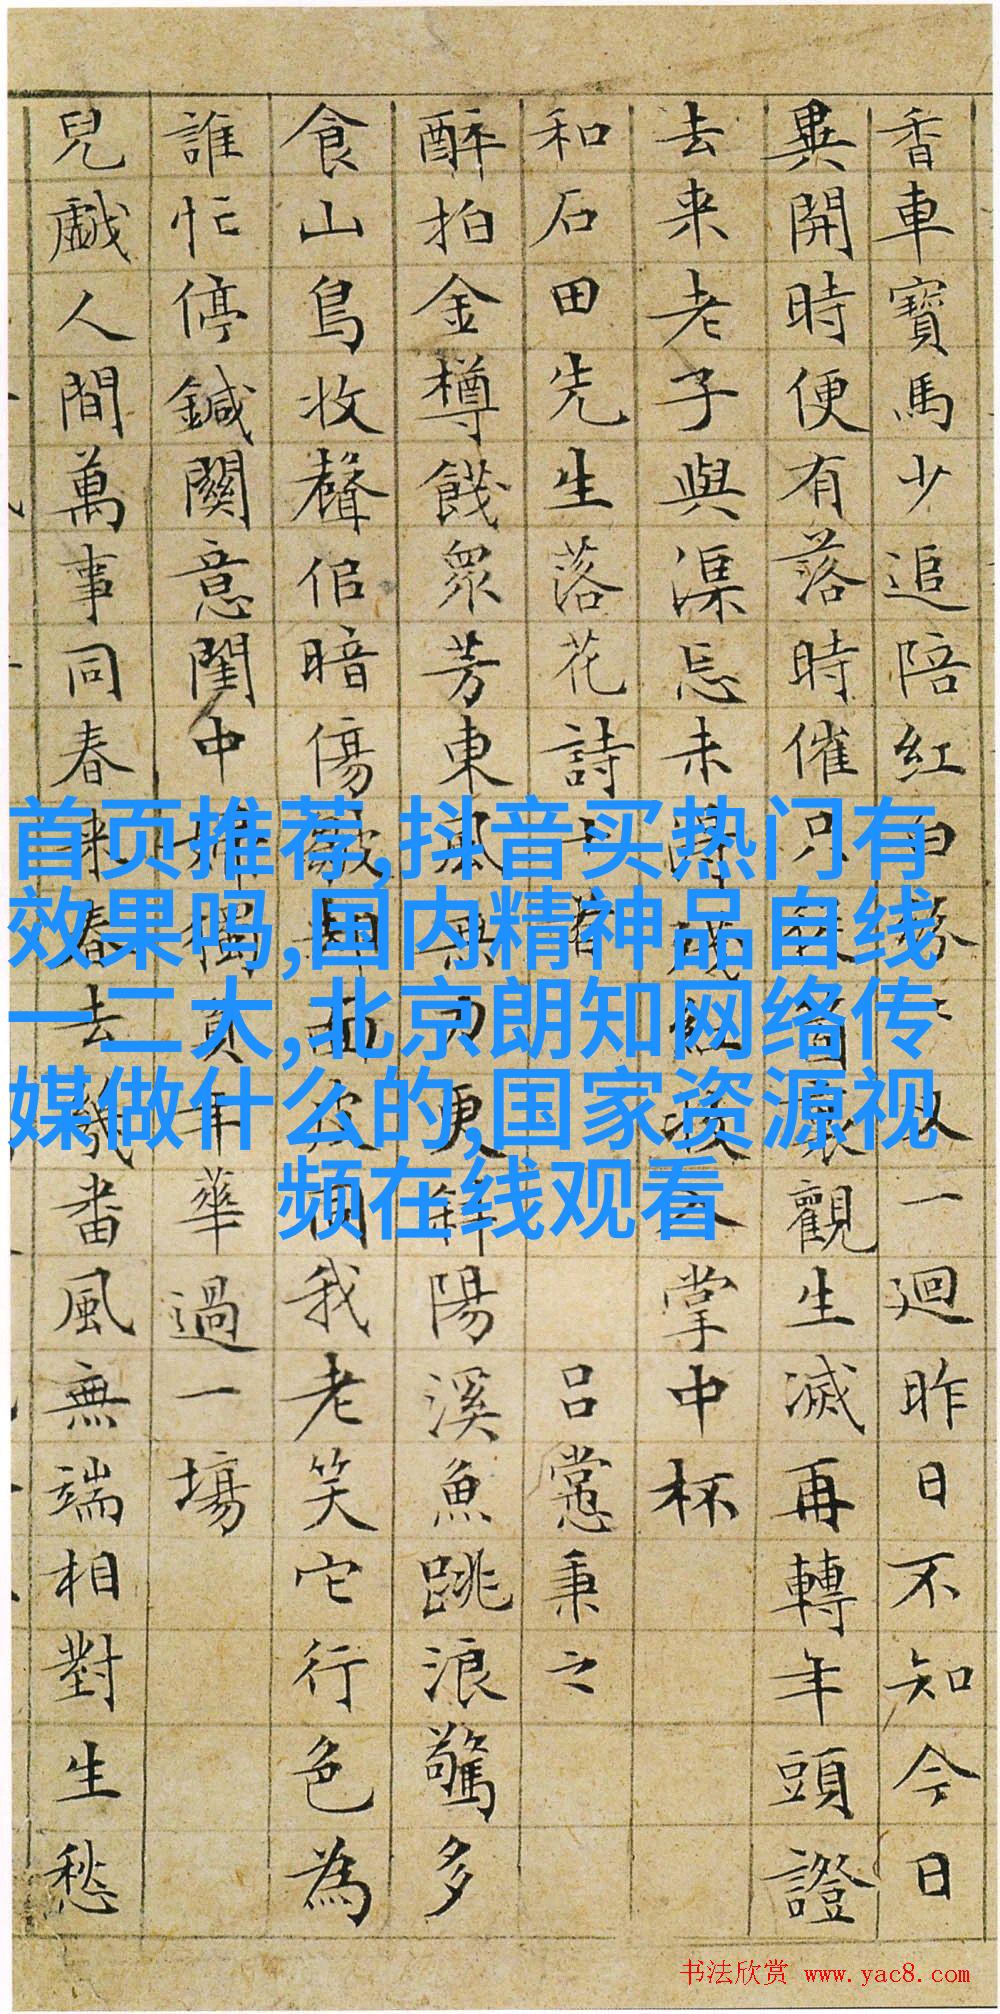 香車寶馬少追陪紅白又一迴昨日不知今日
異開時便有落時催只箇裏觀生滅再轉年頭證
去来老子與渠忘未成紅入掌中杯
和石田先生落花詩十首 吕秉之
醉拍金樽餞衆芳東風無更斜陽溪魚跳浪驚多
食山鳥收聲佀暗傷西同我老笑它行色為
誰忙停鍼關意閨中婦獨年華過一場
兒戲人間萬事同春来春去幾番風無端相對生愁
首页推荐,抖音买热门有
效果吗,国内精神品自线
一二大,北京朗知网络传
媒做什么的,国家资源视
频在线观看
书法欣赏 www.yac8.com